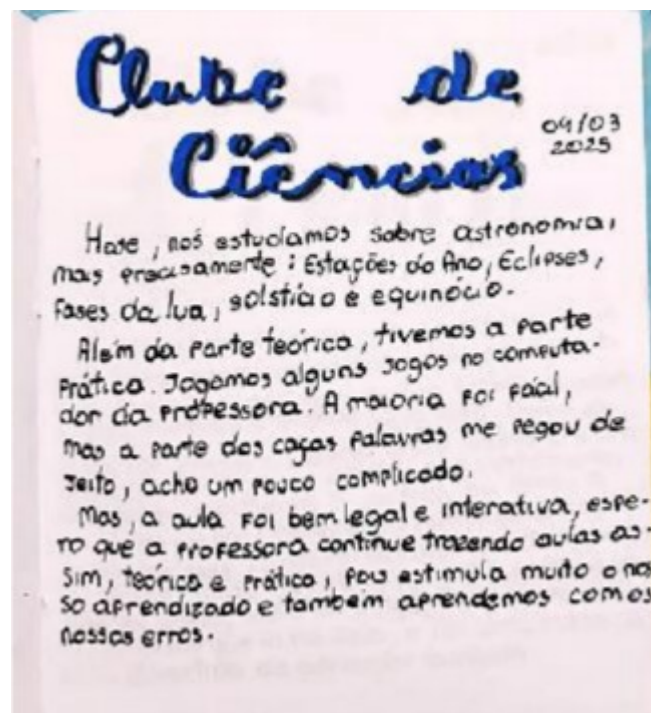 Clube de
04/03
2025
Ciências
Hoje, nós estudamos sobre astronomia,
mas precisamente: Estações do Ano, Eclipses,
fases da lua, solstício e equinócio.
Além da parte teórica, tivemos a parte
prática. Jogamos alguns jogos no computa-
dor da professora. A maioria foi fácil,
mas a parte dos caças palavras me pegou de
jeito, acho um pouco complicado.
Mas, a aula foi bem legal e interativa, espe-
ro que a professora continue trazendo aulas as-
sim, teórica e prática, pois estimula muito o nos
so aprendizado e também aprendemos com os
nossos erros.